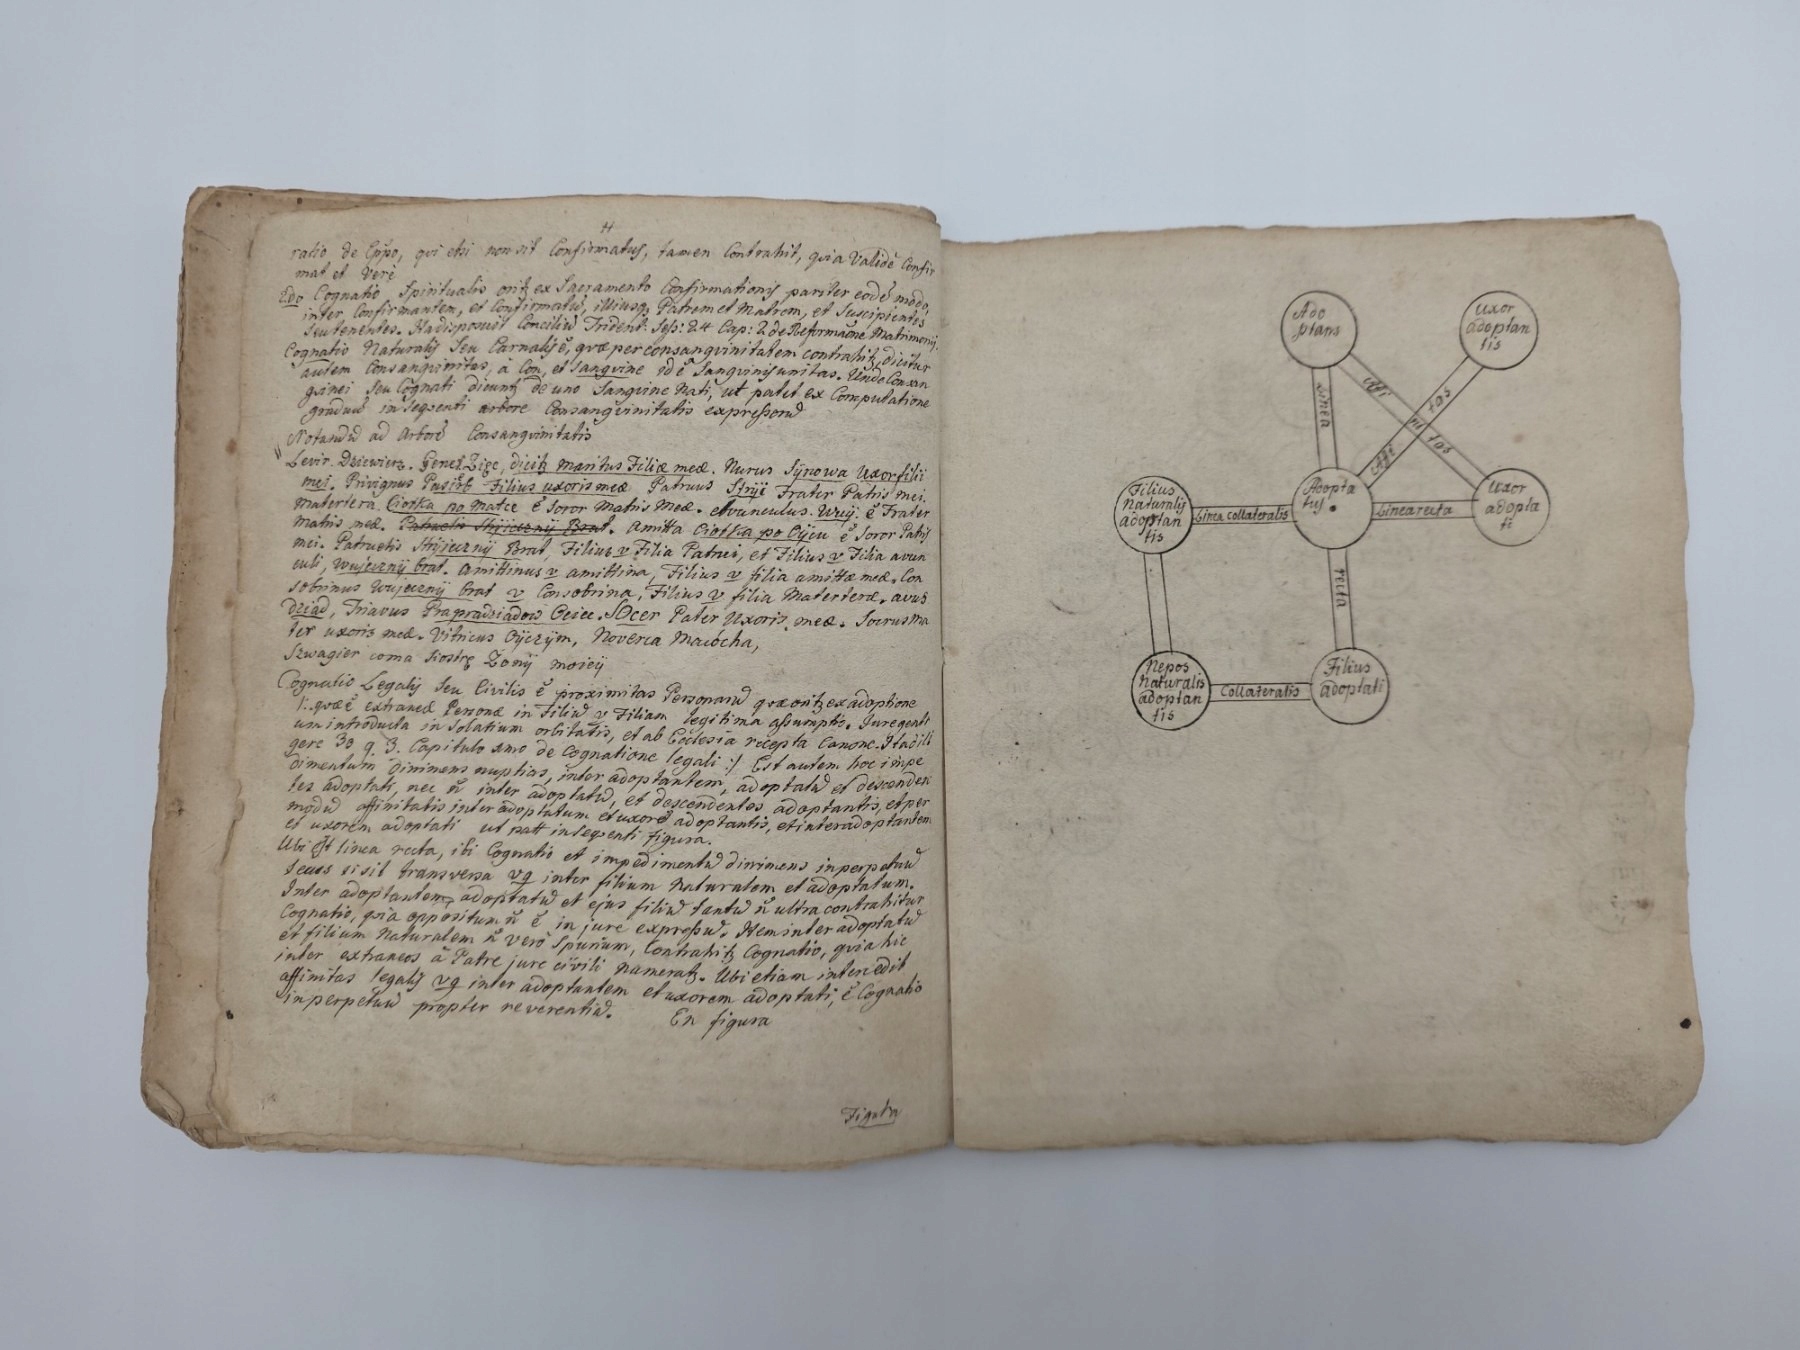 H
ratio de Eppo, qui etsi non sit Confirmatus, tamen Contrahit, quia Validè Confir
mat et Verè
2do Cognatio Spiritualis oritz ex Sacramento Confirmationis pariter eodē modo,
inter Confirmantem, et Confirmatū, illiusq. Patrem et Matrem, et Suscipientes
Seu tenentes. Ita disposuit Conciliū Trident: Sess: 24 Cap: 2 de Reformaōne Matrimonij.
Cognatio Naturalis Seu Carnalis ē, quæ per consangvinitatem contrahitz, dicitur
autem Consangvinitas, à Con, et Sangvine id ē Sangvinis unitas. Unde Consan
gvinei Seu Cognati dicuntz de uno Sangvine Nati, ut patet ex Computatione
graduū in seqsenti arbore Consangvinitatis expressorū
Notandū ad Arborē Consangvinitatis
Levir. Dziewierz. Gener Zięc, dicitz Maritus Filiæ meæ. Nurus Synowa Uxor filii
mei. Privignus Pasirb Filius uxoris meæ Patruus Stryi Frater Patris mei.
Matertera Ciotka po Matce ē Soror Matris Meæ. Avunculus. Wuy. ē Frater
Matris meæ. Patruelis Stryieczny Brat. Amitta Ciotka po Oycu ē Soror Patris
mei. Patruelis Stryieczny Brat, Filius v Filia Patrui, et Filius v Filia avun
culi, Wujeczny brat. Amittinus v amittina, Filius v filia amittæ meæ. Con
sobrinus Wujeczny brat v Consobrina, Filius v filia Materteræ. avus
Dziad, Triavus Prapradziadow Ociec. Socer Pater Uxoris meæ. Socrus Ma
ter uxoris meæ. Vitricus Oyczym, Noverca Macócha,
Szwagier coma Siostrę Zony moiey
Cognatio Legalis Seu Civilis ē proximitas Personarū quæ oritz ex adoptione
/: quæ ē extraneæ Personæ in Filiū v Filiam legitima assumptio. Jure genti
um introducta in Solatium orbitatis, et ab Ecclesia recepta Canone. Ita
gere 30 q. 3. Capitulo uno de Cognatione legali :/ Est autem hoc impe
dimentum Dirimens nuptias, inter adoptantem, adoptatū et descenden
tes adoptati, nec ñ inter adoptatū, et descendentes adoptantis, et per
modū affinitatis inter adoptatum et uxorē adoptantis, et inter adoptantem
et uxorem adoptati ut patt in seqsenti figura.
Ubi est linea recta, ibi Cognatio et impedimentū dirimens in perpetuū
Secus si sit transversa vg inter filium Naturalem et adoptatum.
Inter adoptantem, adoptatū et ejus filiū tantū ñ ultra contrahitur
Cognatio, quia oppositum ñ ē in jure expressū. Item inter adoptatū
et filium Naturalem ñ verò Spurium, Contrahitz Cognatio, quia hic
inter extraneos à Patre jure civili numeratz. Ubi etiam intercedit
affinitas legalis vg inter adoptantem et uxorem adoptati, ē Cognatio
in perpetuū propter reverentiā. En figura
Figura
Ado
ptans
Uxor
adoptan
tis
Linea
Affi
ni
tas
Affi
tas
Filius
Naturalis
adoptan
tis
Linea Collateralis
Adopta
tus
Linea recta
Uxor
adopta
ti
recta
Nepos
Naturalis
adoptan
tis
Collateralis
Filius
adoptati